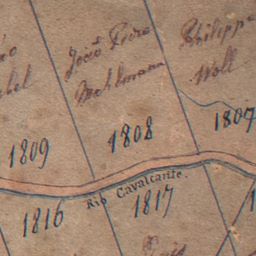 João Pedro
Mehlmann
Philippe
Woll
1809
1808
1807
Rio Cavalcante.
1816
1817